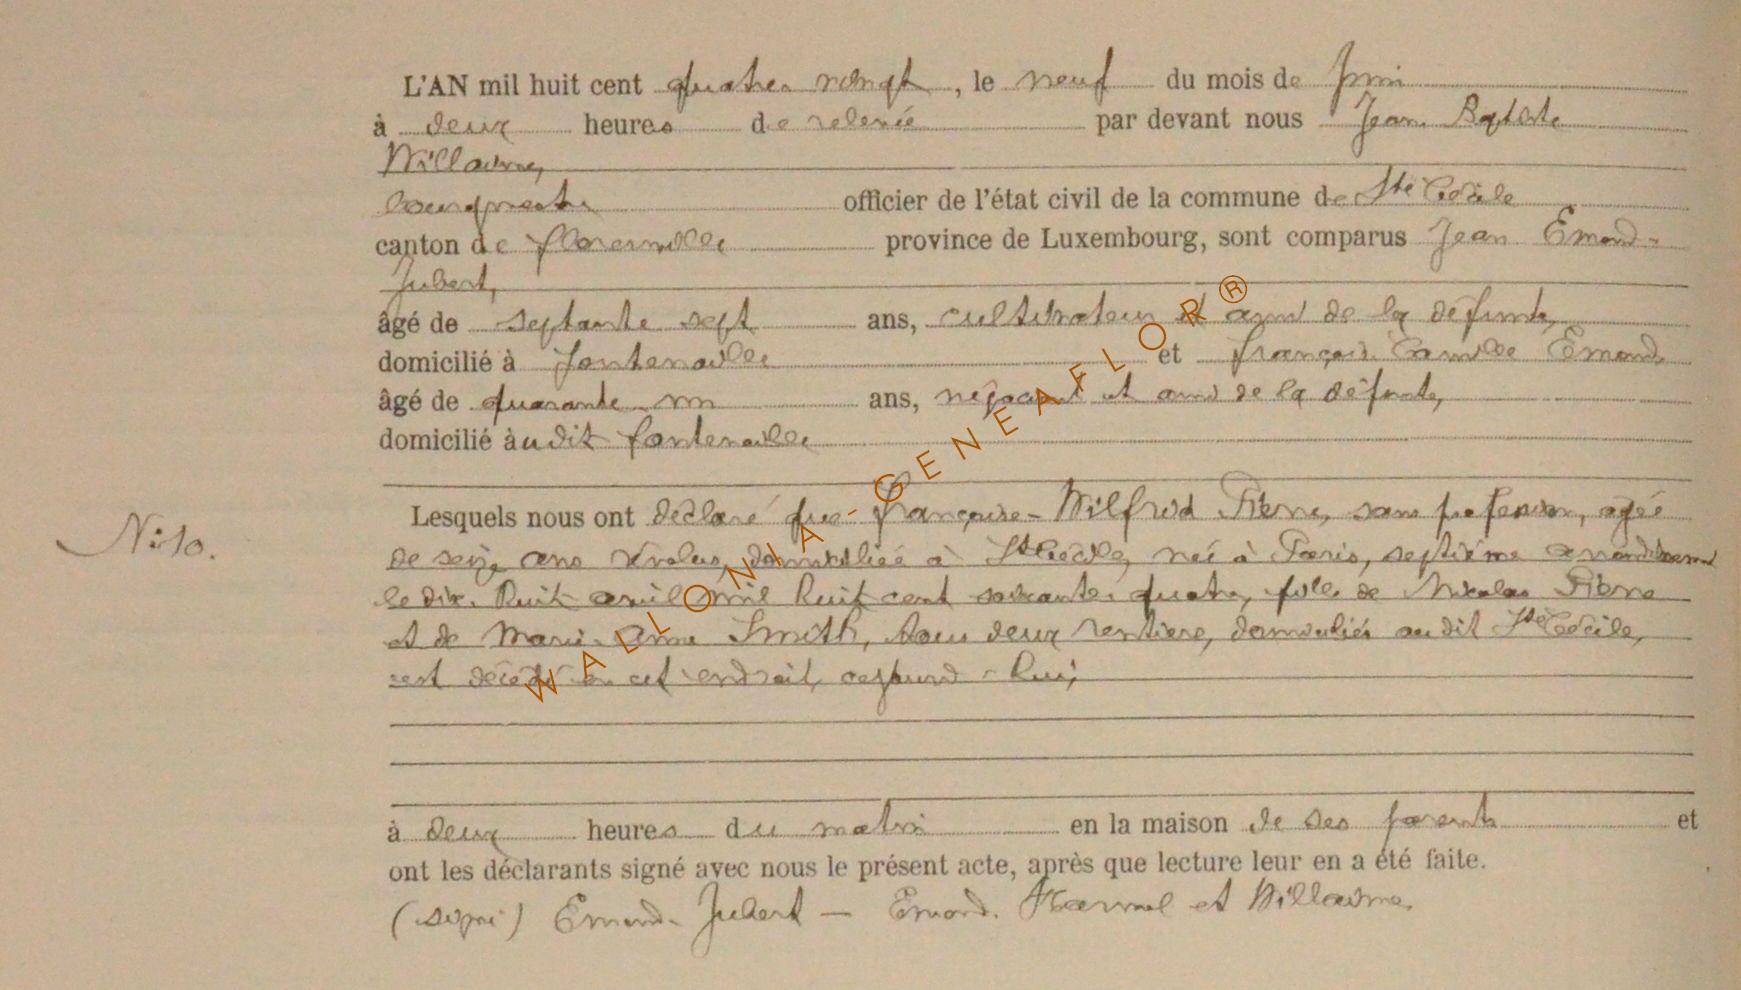 L'AN mil huit cent quatre vingt, le neuf du mois de Juin
à deux heures de relevée par devant nous Jean Baptiste
Willaume,
bourgmestre officier de l'état civil de la commune de Ste Cécile
canton de florenville province de Luxembourg, sont comparus Jean Emond-
Jubert,
âgé de septante sept ans, cultivateur et ami de la défunte,
domicilié à fontenaille et françois Camille Emond
âgé de quarante un ans, négociant et ami de la défunte,
domicilié àudit fontenaille
Lesquels nous ont déclaré que françoise-Wilfrid Pierre, sans profession, agée
de seize ans révolus, domiciliée à Ste Cécile, née à Paris, septième arrondissement
le dix-huit avril mil huit cent soixante quatre, fille de Nicolas Pierre
et de Marie-Anne Smith, tous deux rentiers, domiciliés audit Ste Cécile,
est décédée en cet endroit, cejourd-hui,
à deux heures du matin en la maison de ses parents et
ont les déclarants signé avec nous le présent acte, après que lecture leur en a été faite.
(signé) Emond-Jubert — Emond. et Willaume.
No 10.
WALLONIA-GENEAFLOR®